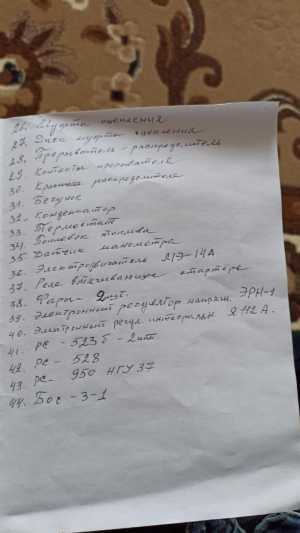 26. Муфты сцепления
27. Диск муфты сцепления
28. Прерыватель-распределитель
29. Контакты прерывателя
30. Крышка распределителя
31. Бегунок
32. Конденсатор
33. Термостат
34. Поплавок топлива
35. Датчик манометра
36. Электродвигатель МЭ-14А
37. Реле втягивающие стартера
38. Фары - 2шт.
39. Электронный регулятор напряж. ЭРН-1
40. Элктронный регул. интегральн. Я 112 А.
41. РС - 523 б - 2шт
42. РС - 528
43. РС - 950 НГУ 37
44. Бос - 3 - 1